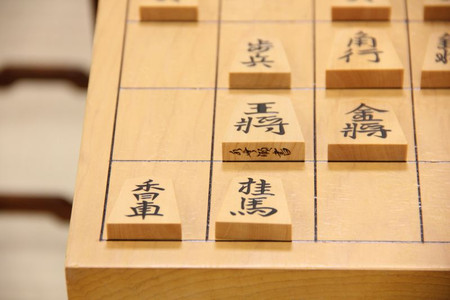 步兵
角行
王將
金將
香車
桂馬